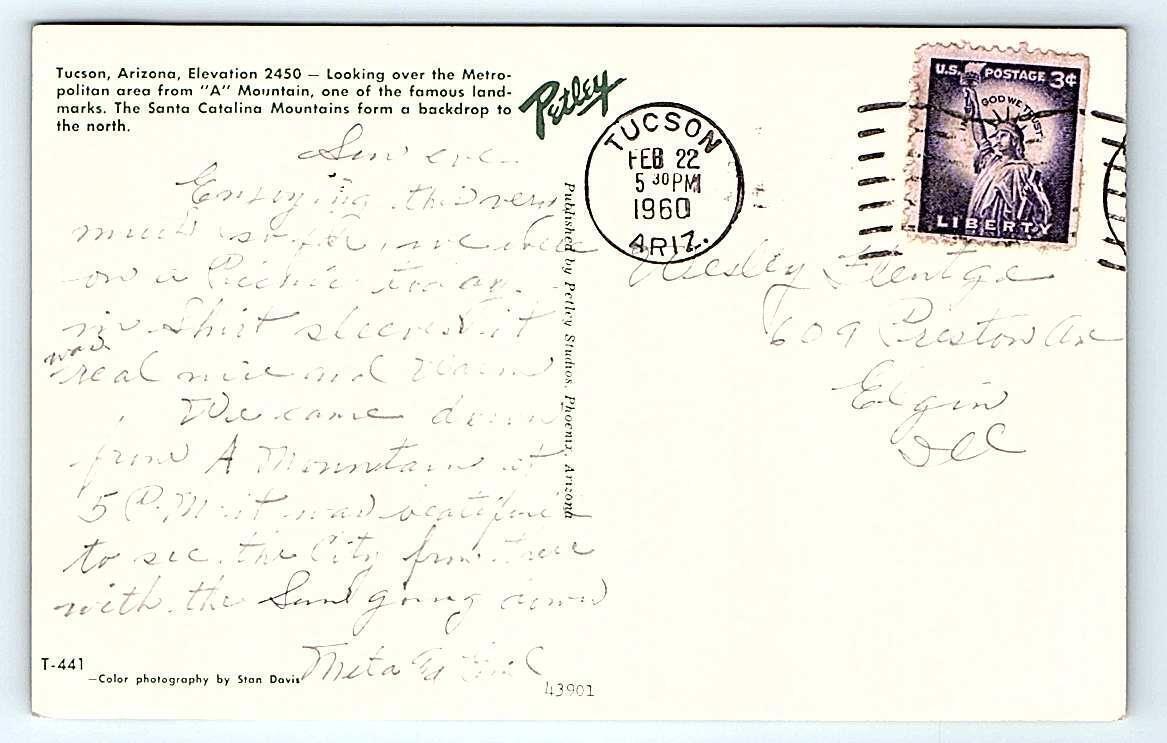 Tucson, Arizona, Elevation 2450 — Looking over the Metro-
politan area from "A" Mountain, one of the famous land-
marks. The Santa Catalina Mountains form a backdrop to
the north.
Petley
TUCSON
FEB 22
5 30 PM
1960
ARIZ.
U.S. POSTAGE 3¢
IN GOD WE TRUST
LIBERTY
Sun eve.
Enjoying this very
much so far, we were
on a Picnic today
in Shirt sleeves it
was
real nice and Warm
We came down
from A Mountain at
5 P.M. it was beatiful
to see the City from there
with the Sun going down
Meta
Published by Petley Studios, Phoenix, Arizona
Wesley Flentge
609 Preston Ave
Elgin
Ill
T-441
—Color photography by Stan Davis
43901